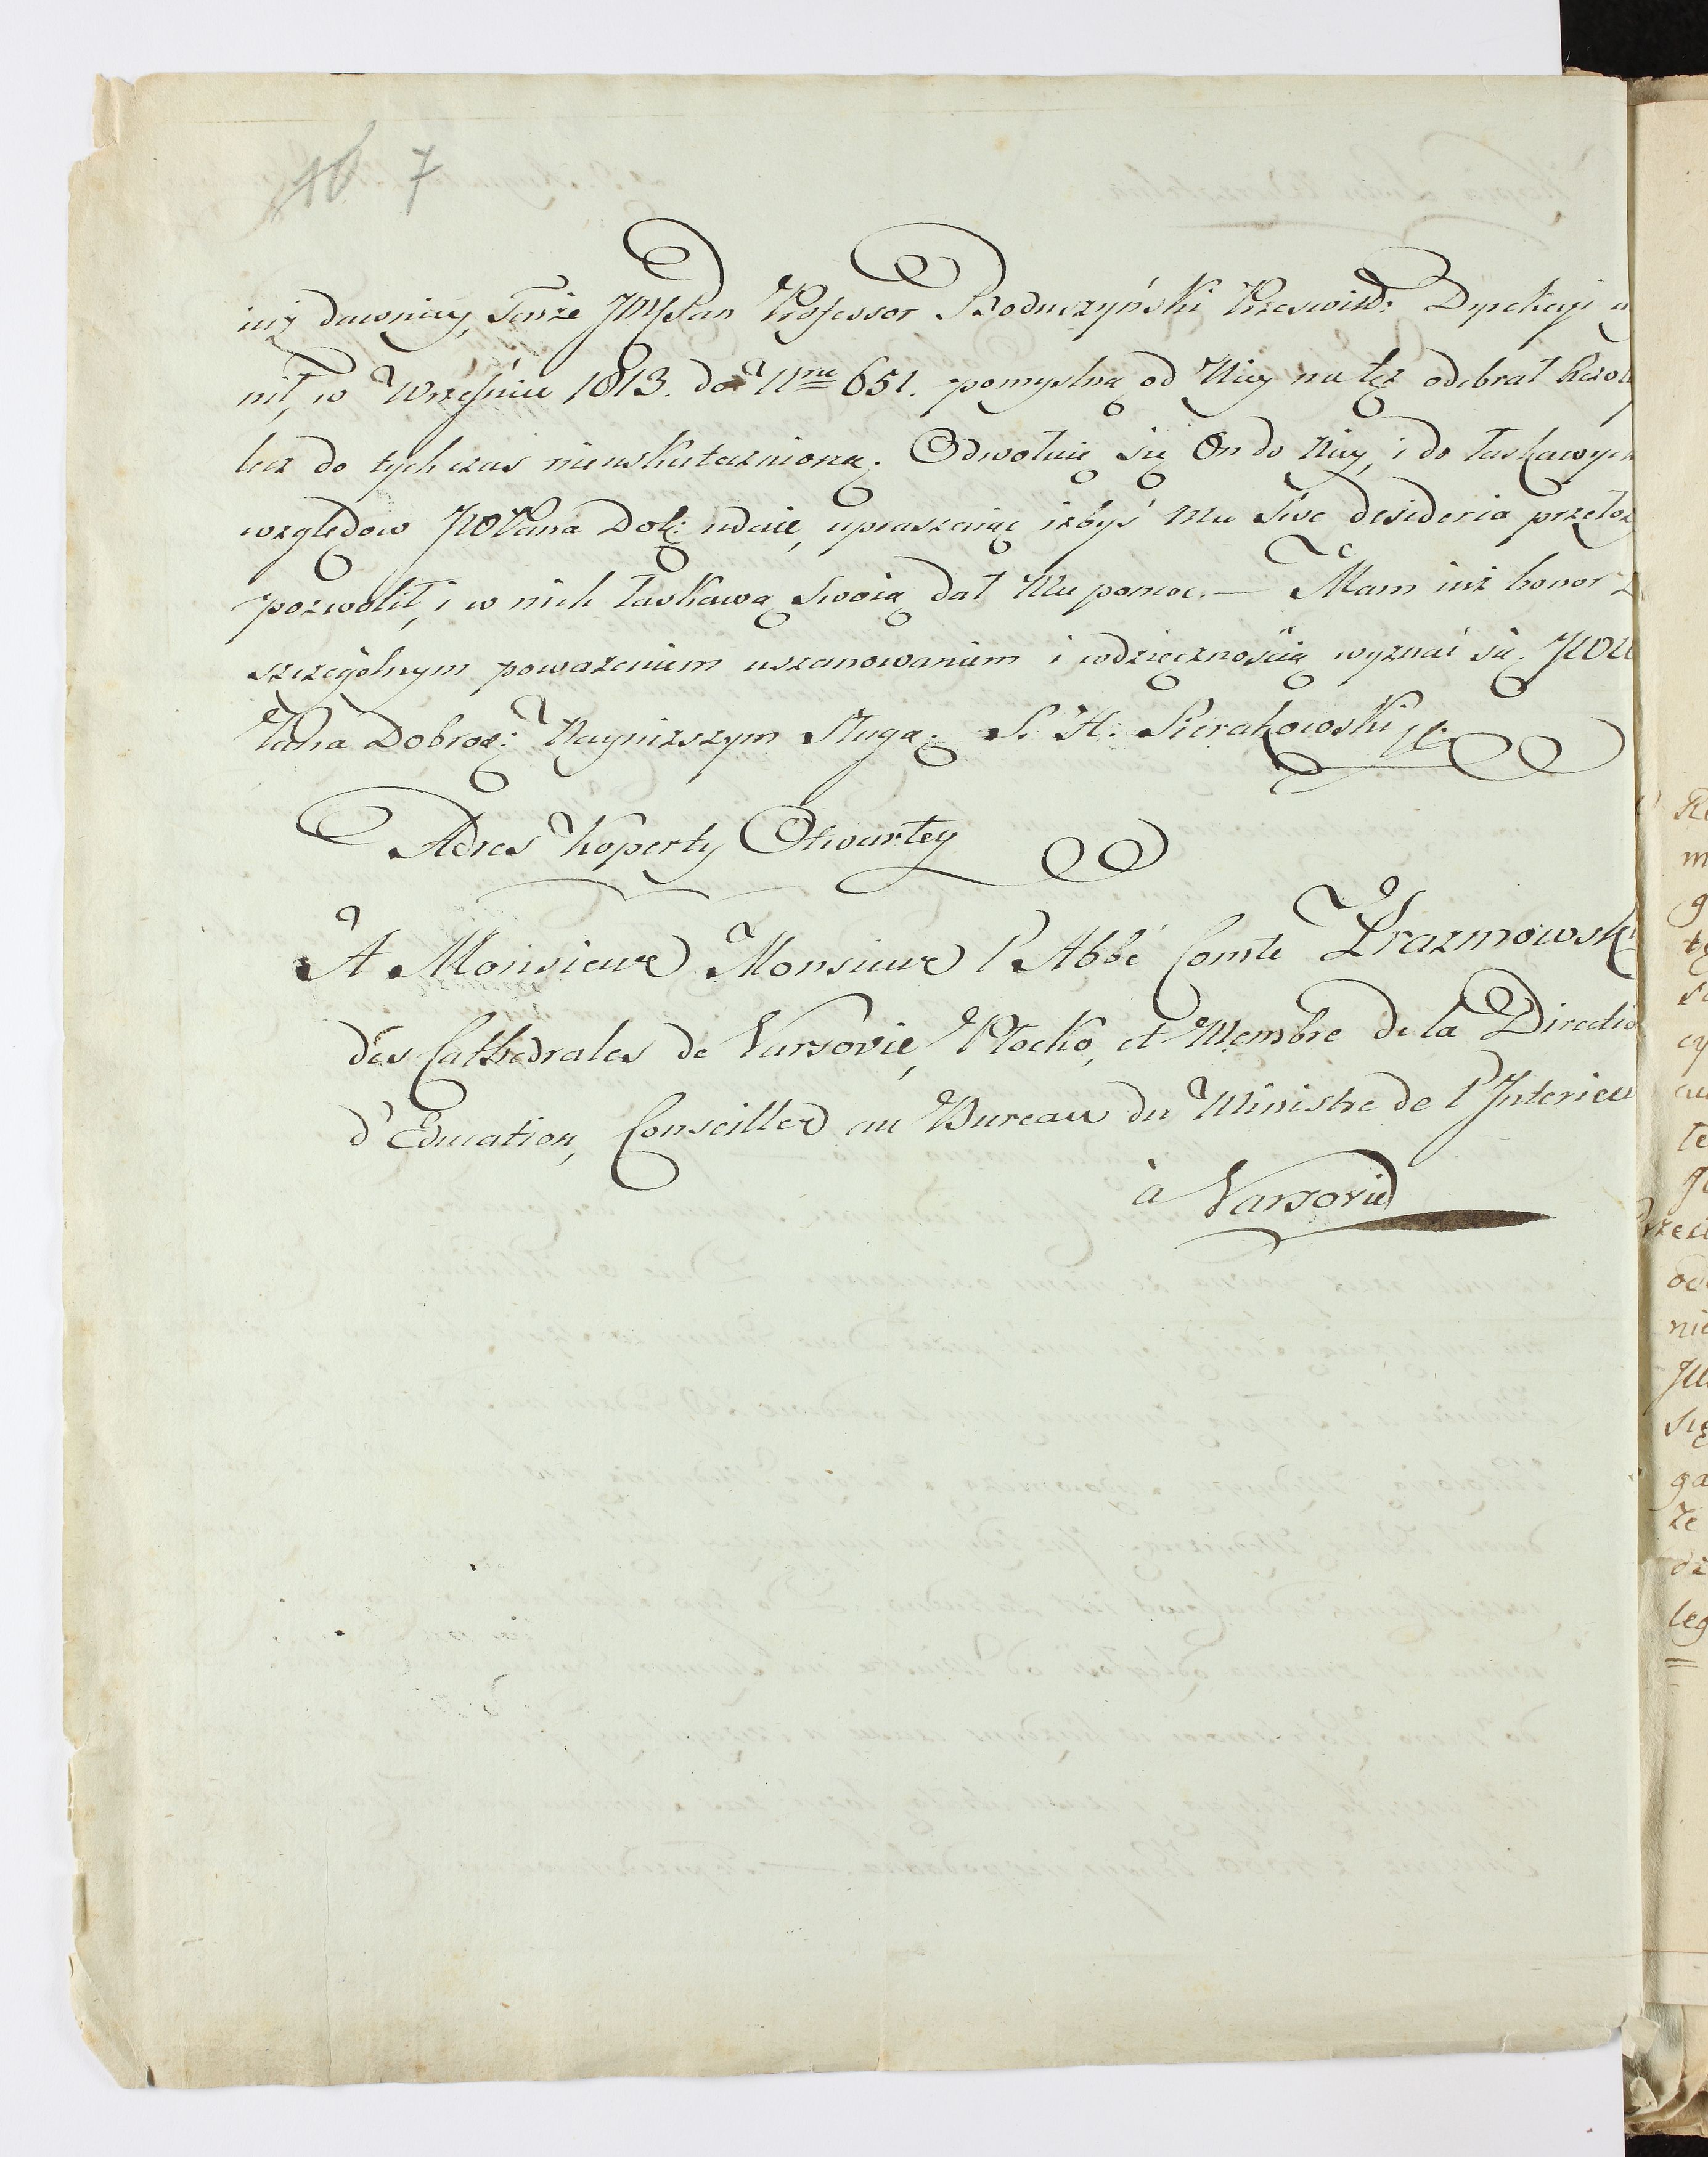 7
iuż dawniey, tenże JMPan Professor Boduszyński Przeświet: Dyrekcyi
nił, w Wrześniu 1813. do Nru 651. pomyslną od Niey na też odebrał Rezol
lecz do tych czas nieuskuteczniona. Odwołuie się On do Niey, i do łaskawych
względow JWPana Dob: udaie, upraszaiąc iżbyś Mu Swe desideria przełoż
pozwolił, i w nich łaskawą Swoią dał Mu pomoc. — Mam iuż honor z
szczególnym poważeniem uszanowaniem i wdzięcznością wyznać się JWW
Pana Dobrod: Nayniższym Sługą. S. H: Sierakowski
Adres Koperty Otwartey
A Monsieur Monsieur l'Abbé Comte Prazmowski
des Cathedrales de Varsovie, Plocko, et Membre de la Directio
d'Education, Conseiller au Bureau du Ministre de l'Interieu
à Varsovie